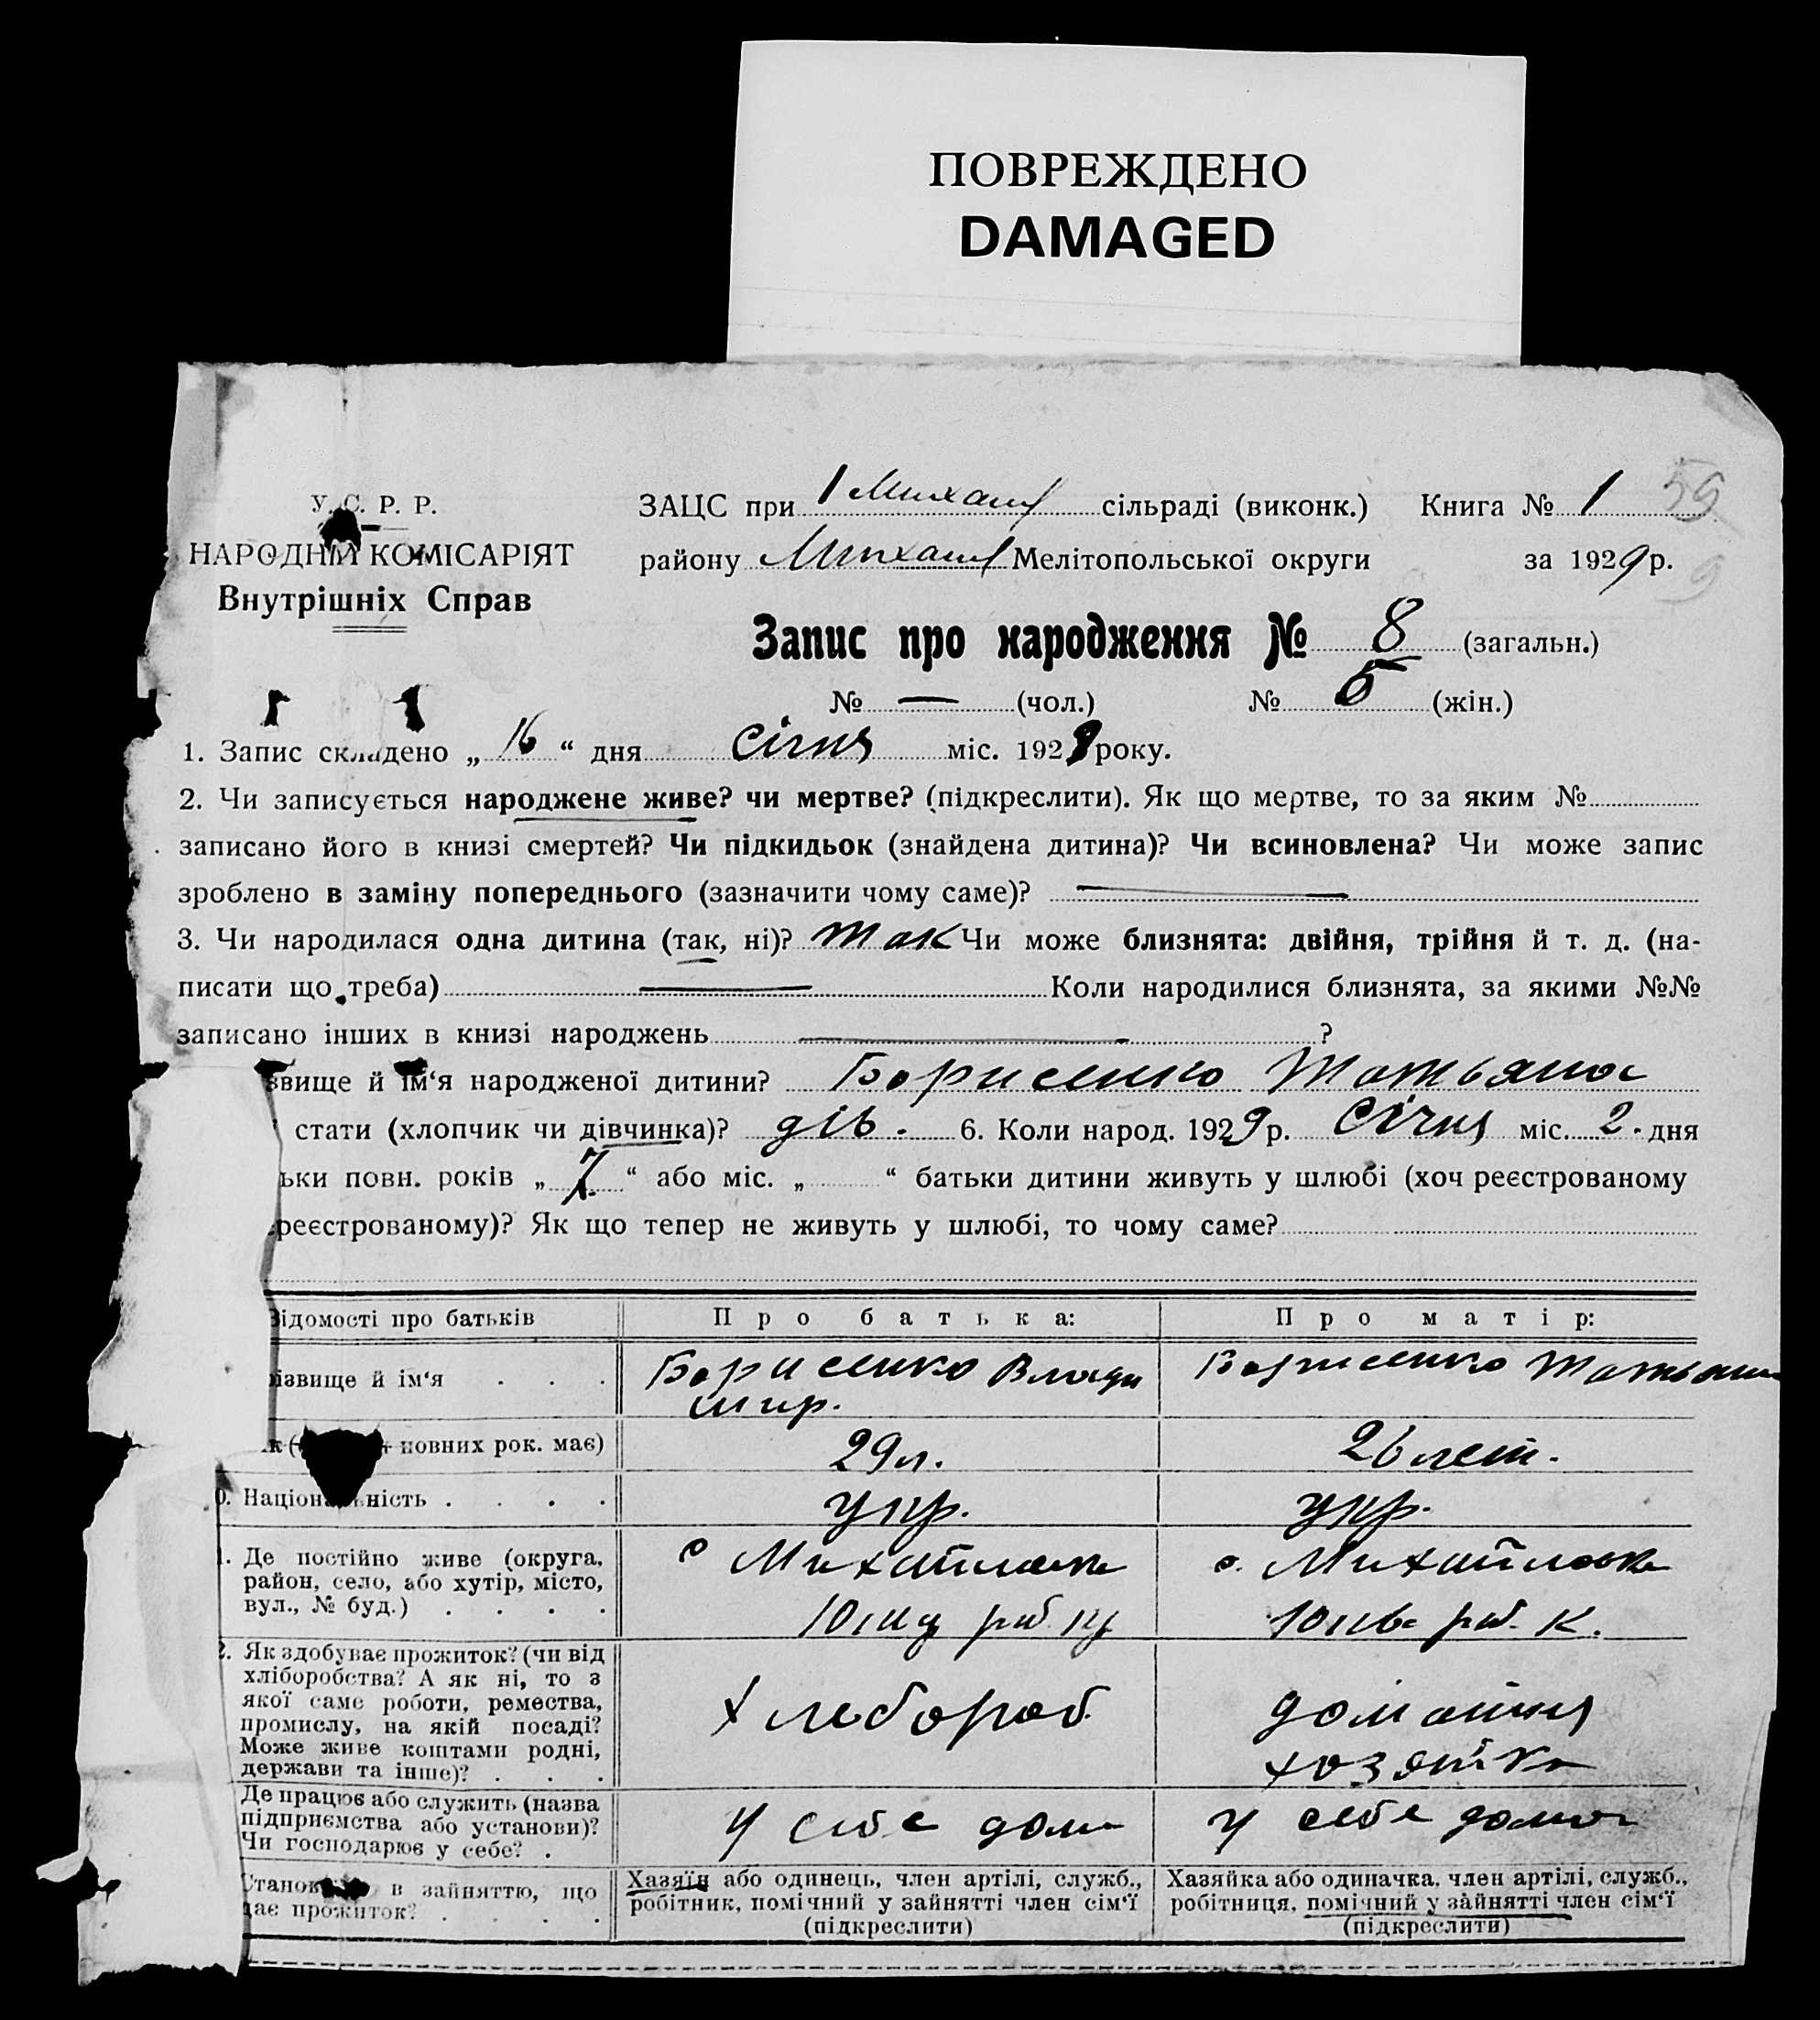 ПОВРЕЖДЕНО
DAMAGED
У. С. Р. Р.
НАРОДНІЙ КОМІСАРІЯТ
Внутрішніх Справ
ЗАЦС при 1 Михайл сільраді (виконк.) Книга № 1 59
району Михайл Мелітопольської округи за 1929 р. 9
Запис про народження № 8 (загальн.)
№ — (чол.) № 5 (жін.)
1. Запис складено „ 16 “ дня січня міс. 1929 року.
2. Чи записується народжене живе? чи мертве? (підкреслити). Як що мертве, то за яким №
записано його в книзі смертей? Чи підкидьок (знайдена дитина)? Чи всиновлена? Чи може запис
зроблено в заміну попереднього (зазначити чому саме)? —
3. Чи народилася одна дитина (так, ні)? так Чи може близнята: двійня, трійня й т. д. (на-
писати що треба) — Коли народилися близнята, за якими №№
записано інших в книзі народжень — ?
звище й ім‘я народженої дитини? Борисенко Татьяна
стати (хлопчик чи дівчинка)? дів. 6. Коли народ. 1929 р. Січня міс. 2. дня
ьки повн. років „ 7 “ або міс. „ “ батьки дитини живуть у шлюбі (хоч реєстрованому
реєстрованому)? Як що тепер не живуть у шлюбі, то чому саме?
Відомості про батьків Про батька: Про матір:
ізвище й ім‘я . . . Борисенко Влади
мир. Борисенко Татьяна
к ( повних рок. має) 29 л. 26 лет.
0. Національність . . . . укр. укр.
1. Де постійно живе (округа,
район, село, або хутір, місто,
вул., № буд.) . . . .
с Михайловка
с. Михайловка
2. Як здобуває прожиток? (чи від
хліборобства? А як ні, то з
якої саме роботи, ремества,
промислу, на якій посаді?
Може живе коштами родні,
держави та інше)? . . .
хлебороб.
домашня
хозяйка
Де працює або служить (назва
підприємства або установи)?
Чи господарює у себе? .
у себе дома
у себе дома
Станов в зайняттю, що
дає прожиток? . . . .
Хазяїн або одинець, член артілі, служб.,
робітник, помічний у зайнятті член сім‘ї
(підкреслити)
Хазяйка або одиначка, член артілі, служб.,
робітниця, помічний у зайнятті член сім‘ї
(підкреслити)